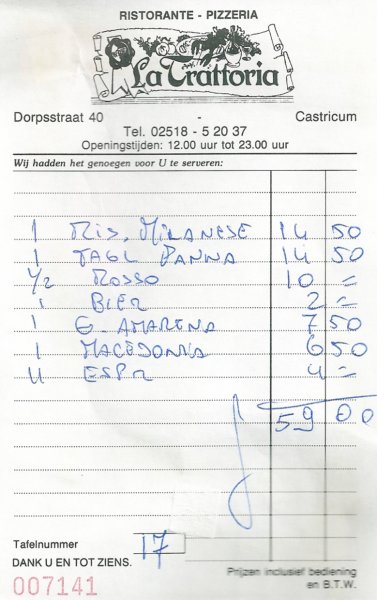 RISTORANTE - PIZZERIA
La Trattoria
Dorpsstraat 40 - Castricum
Tel. 02518 - 5 20 37
Openingstijden: 12.00 uur tot 23.00 uur
Wij hadden het genoegen voor U te serveren:
1 RIS. MILANESE 14 50
1 TAGL PANNA 14 50
1/2 ROSSO 10 =
1 BIER 2 =
1 G. AMARENA 7 50
1 MACEDONIA 6 50
4 ESPR 4 =
59 00
Tafelnummer 17
DANK U EN TOT ZIENS.
Prijzen inclusief bediening
en B.T.W.
007141